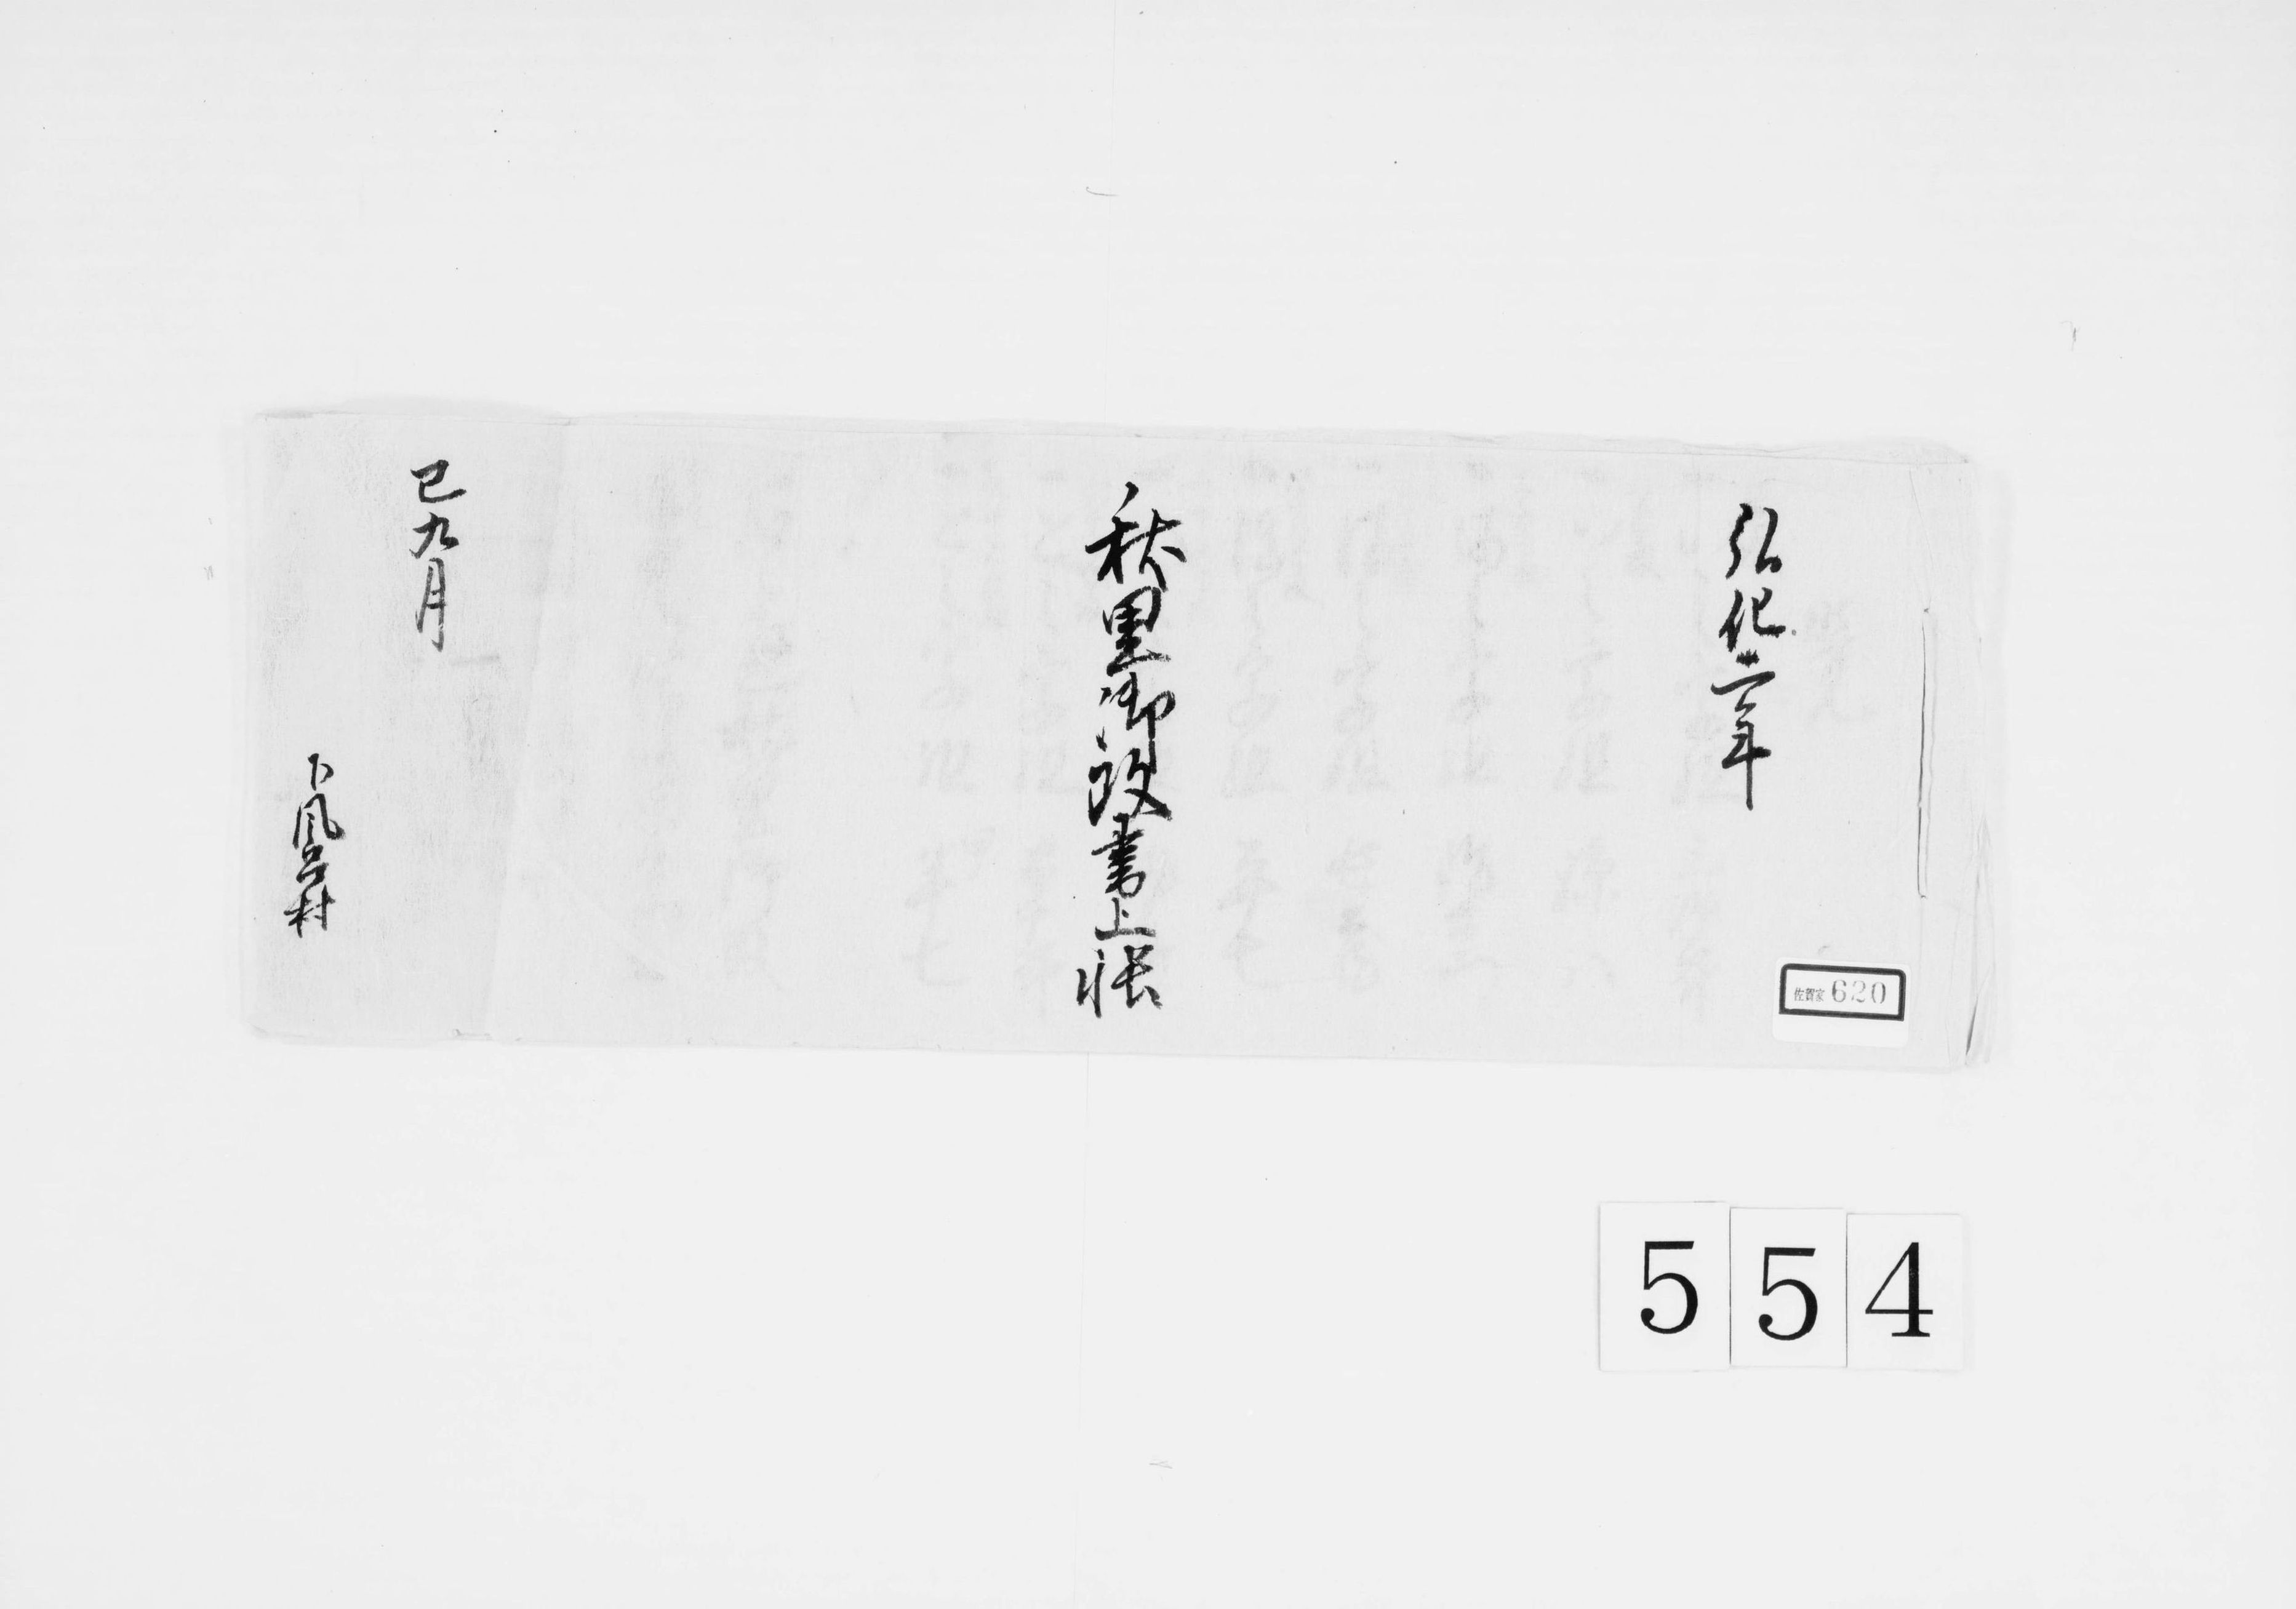 弘化二年
秋里御改書上帳
巳九月
下風呂村
佐賀家 620
554